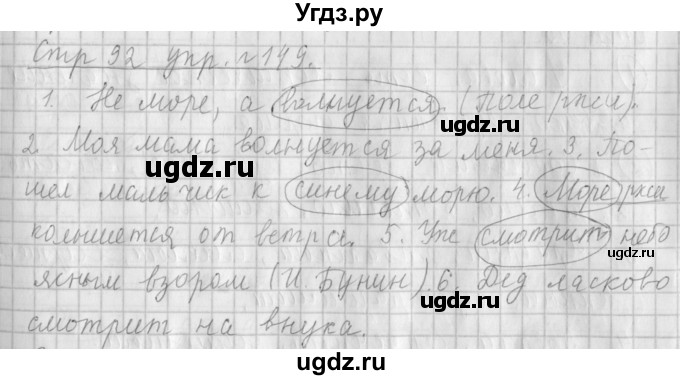 Угдз.ру
Стр 92 упр. №149.
1. Не море, а волнуется. (Поле ржи).
2. Моя мама волнуется за меня. 3. По-
шел мальчик к синему морю. 4. Море ржи
колышется от ветра. 5. Уж смотрит небо
ясным взором (И. Бунин). 6. Дед ласково
смотрит на внука.
ugdz.ru
ugdz.ru
ugdz.ru
ugdz.ru
ugdz.ru
ugdz.ru
ugdz.ru
ugdz.ru